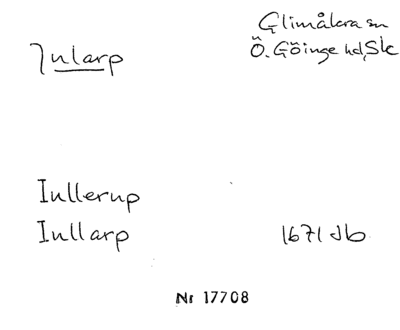 Jularp
Glimåkra sn
Ö. Göinge hd, Sk
Iullerup
Iullarp 1671 Jb
Nr 17708